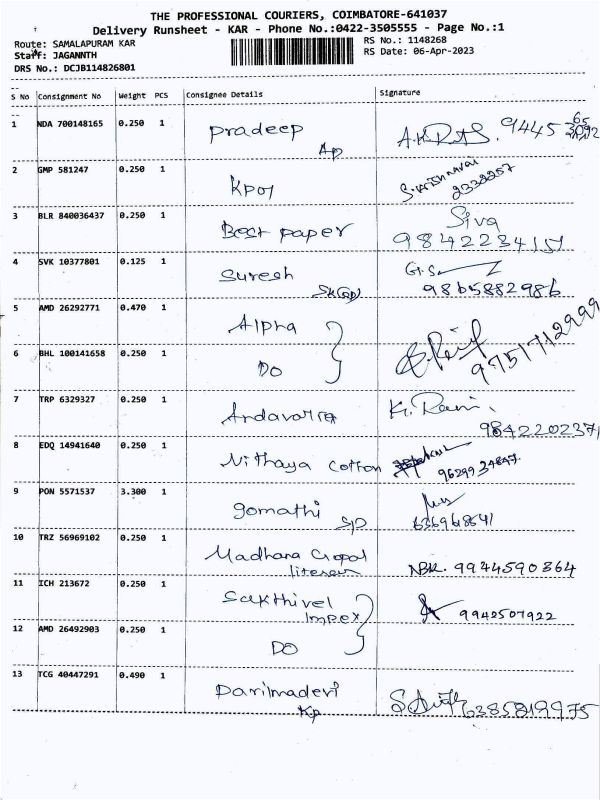 THE PROFESSIONAL COURIERS, COIMBATORE-641037
Delivery Runsheet - KAR - Phone No.:0422-3505555 - Page No.:1
Route: SAMALAPURAM KAR
RS No.: 1148268
Staff: JAGANNTH
RS Date: 06-Apr-2023
DRS No.: DCJB114826801
S No Consignment No Weight PCS Consignee Details Signature
1 NDA 700148165 0.250 1 Pradeep
Ap
2 GMP 581247 0.250 1 KPOY 2338257
3 BLR 840036437 0.250 1 Best paper Siva
9842234151
4 SVK 10377801 0.125 1 Suresh G.S
9865882986
5 AMD 26292771 0.470 1 Alpha
9751712999
6 BHL 100141658 0.250 1 DO
7 TRP 6329327 0.250 1 K. Rani.
9842202371
8 EDQ 14941640 0.250 1 Nithaya Cotton
9629934847
9 PON 5571537 3.300 1 Gomathi
SP 636968641
10 TRZ 56969102 0.250 1 Madhana Gopal
NBK. 9944590364
11 ICH 213672 0.250 1 Sakthivel
Impex 9942507922
12 AMD 26492903 0.250 1 DO
13 TCG 40447291 0.490 1 Darimadevi
Kp 6385819975